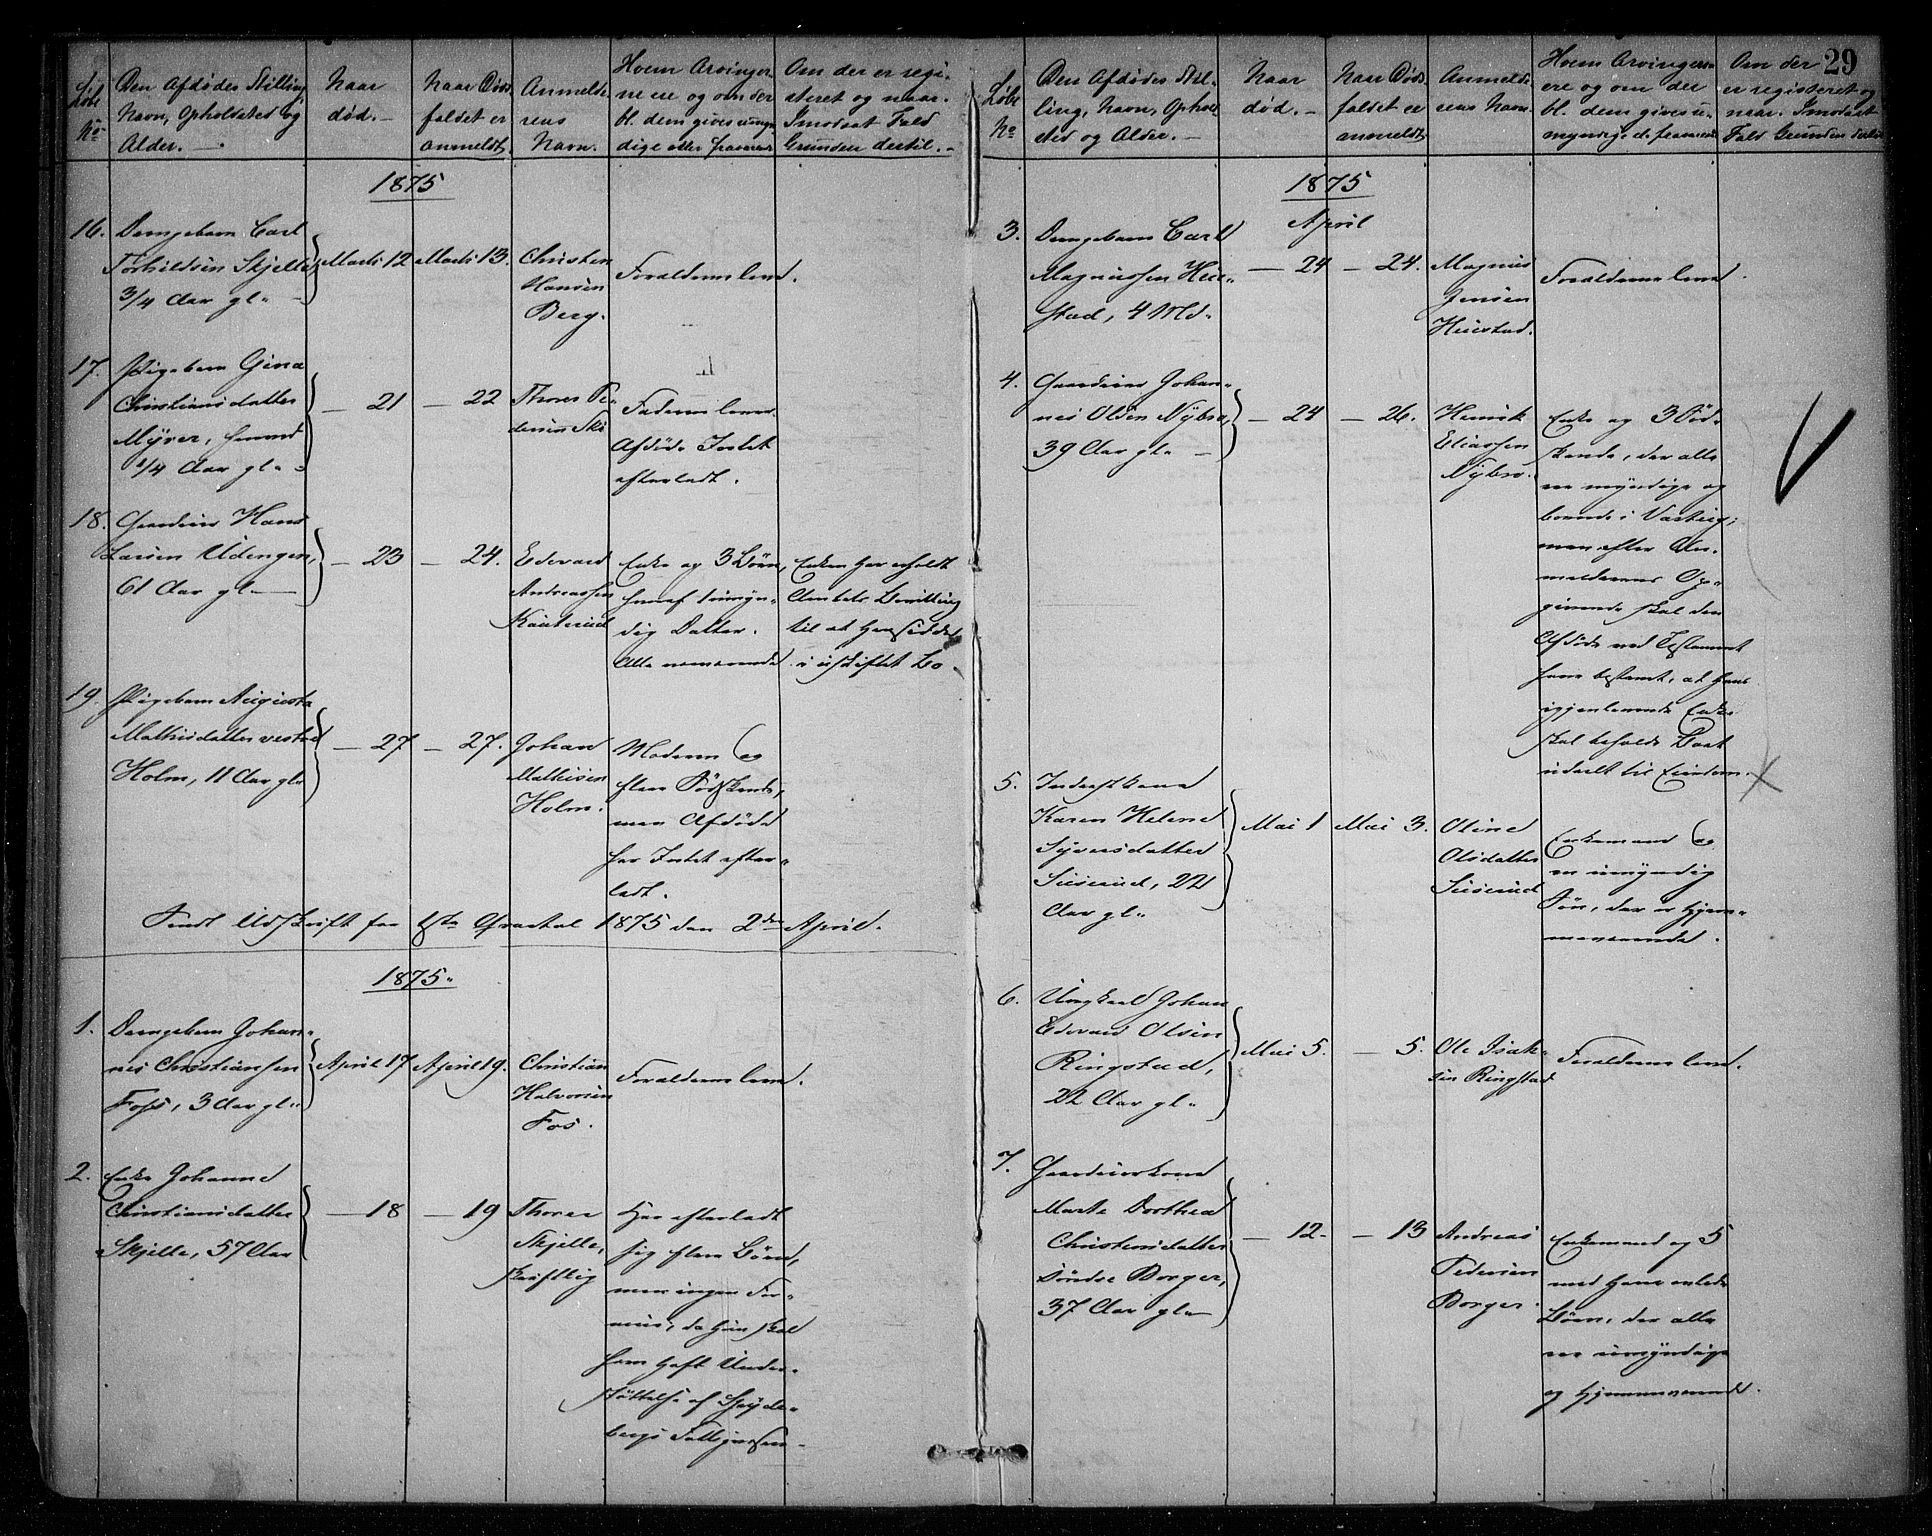 29
Løbe No
Den Afdødes Stilling,
Navn, Opholdsted og
Alder. —
Naar
død. —
Naar Døds-
faldet er
anmeldt.
Anmelde-
rens
Navn.
Hvem Arvinger-
ne ere og om der
bl. dem gives umyn-
dige eller fravær.
Om der er regi-
streret og naar.
I modsat Fald
Grunden dertil. —
1875
16. Drengebarn Carl
Skjelle,
3/4 Aar gl.
Marts 12
Marts 13.
Christen
Hansen
Berg.
Forældrene leve.
17. Pigebarn Gina
Christiansdatter
Myrer,
1/4 Aar gl.
— 21
— 22
Thorer Pe-
dersen Ski
Faderen lever.
Afdøde Intet
efterladt.
18. Gaardeier Hans
Larsen Udengen,
61 Aar gl. —
— 23
— 24.
Edevard
Andreassen
Enke og 3 Børn,
hvoraf 1 umyn-
dig Datter.
Alle nærværende.
Enken har erholdt
Amtets Bevilling
til at hensidde
i uskiftet Bo.
19. Pigebarn Augusta
Mathisdatter vestad
Holm, 11 Aar gl.
— 27
— 27.
Johan
Mathisen
Holm.
Moderen og
flere Sødskende,
men Afdøde
har Intet efter-
ladt.
Sendt Udskrift for 1ste Qvartal 1875 den 2den April.
1875.
1. Drengebarn Johan-
nes Christiansen
Foss, 3 Aar gl.
April 17
April 19.
Christian
Halvorsen
Fos.
Forældrene leve.
2. Enke Johanne
Christiansdatter
Skjelle, 57 Aar
— 18
— 19
Thorer
Skjelle,
skriftlig
Har efterladt
sig flere Børn,
men ingen For-
mue, da hun skal
have havt Under-
støttelse af Spyde-
bergs Fattigvæsen.
Løbe No
Den Afdødes Stil-
ling, Navn, Ophold-
sted og Alder. —
Naar
død. —
Naar Døds-
faldet er
anmeldt
Anmelde-
rens Navn.
Hvem Arvingerne
ere og om der
bl. dem gives u-
myndige el. fravær.
Om der
er registreret og
naar. I modsat
Fald Grunden dertil
1875
April
3. Drengebarn Carl
Magnussen Hu-
stad, 4 Md.
— 24
— 24.
Magnus
Jensen
Hustad.
Forældrene leve.
4. Gaardeier Johan-
nes Olsen Nybro,
39 Aar gl. —
— 24
— 26.
Henrik
Eliassen
Nybro.
Enke og 3 Sød-
skende, der alle
ere myndige og
boende i
men efter An-
melderens Op-
givende skal den
Afdøde ved Testament
have bestemt, at hans
igjenlevende Enke
skal beholde Boet
udeelt til Eiendom.
5. Inderstkone
Karen Helene
Syversdatter
22
Aar gl.
Mai 1
Mai 3.
Oline
Olsdatter
Enkemand og
en umyndig
Søn, der er hjem-
meværende.
6. Ungkarl Johan
Edevard Olsen
Ringstad,
22 Aar gl.
Mai 5.
— 5.
Ole Isak-
sen Ringstad
Forældrene leve.
7. Gaardeierkone
Marte Dorthea
Christensdatter
søndre Borger,
37 Aar gl. —
— 12.
— 13
Andreas
Pedersen
Borger.
Enkemand og 5
med ham avlede
Børn, der alle
ere umyndige
og hjemmeværende.